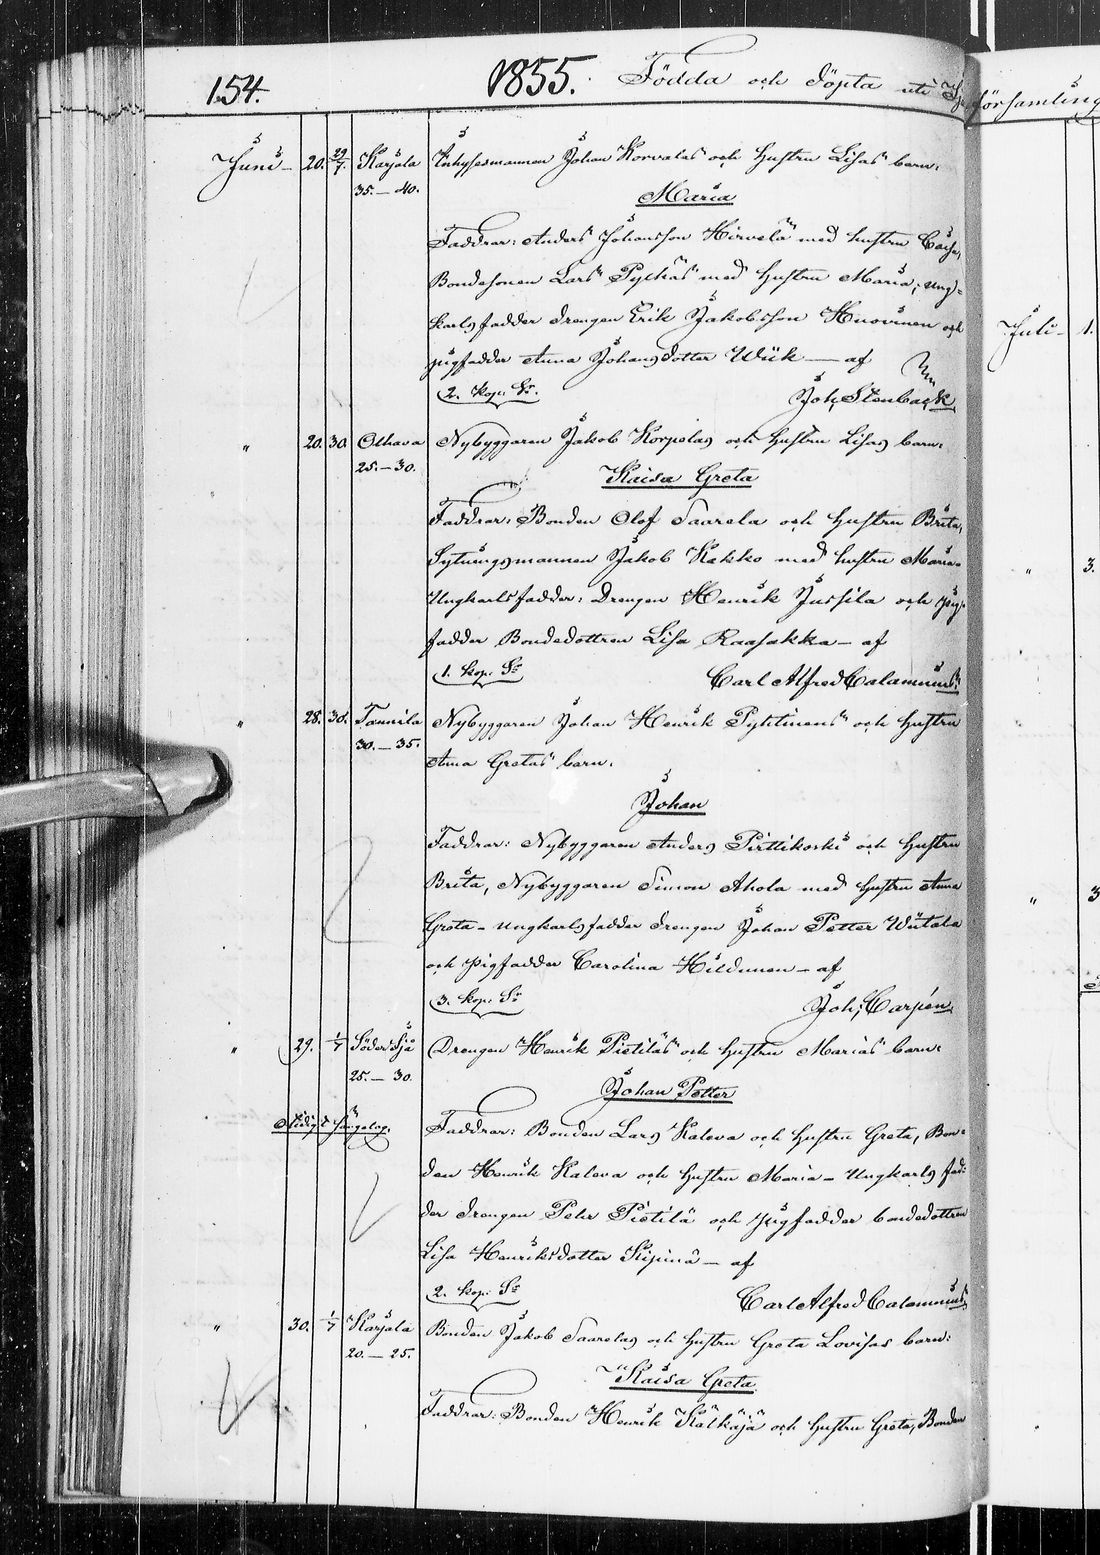 154. 1855. Födda och döpta uti
församling
Juni 20. 29/7. Karjala Inhysesmannen Johan Korvalas och hustru Lisas barn:
35.–40. Maria
Faddrar: Anders Johansson Hirvelä med hustru Caisa,
Bondesonen Lars Pyckäs med hustru Maria, ung-
karlsfadder drengen Erik Jakobsson Huovinen och
pigfadder Anna Johansdotter Wiik — af
2. kop. Sr. Joh. Stenback
" 20. 30. Olhava Nybyggaren Jakob Korpelas och hustru Lisas barn:
25.–30. Kaisa Greta
Faddrar: Bonden Olof Saarela och hustru Brita,
Sytningsmannen Jakob Kakko med hustru Maria–
Ungkarlsfadder: Drengen Henrik Jussila och pig-
fadder Bondedottren Lisa Raasakka – af
1. kop. Sr Carl Alfred Calamnius
" 28. 30. Tannila Nybyggaren Johan Henrik Pyhtinens och hustru
30.–35. Anna Gretas barn:
Johan
Faddrar: Nybyggaren Anders Pirttikoski och hustru
Brita, Nybyggaren Simon Ahola med hustru Anna
Greta – ungkarlsfadder drengen Johan Petter Wiitala
och pigfadder Carolina Hildunen – af
3. kop. Sr Joh. Carpén
" 29. 1/7 Söder Ijå Drengen Henrik Pietiläs och hustru Marias barn:
25.–30. Johan Petter
Faddrar: Bonden Lars Kaleva och hustru Greta, Bon-
den Henrik Kaleva och hustru Maria – Ungkarls fad-
der drengen Pehr Pietilä och pigfadder bondedottren
Lisa Henriksdotter Kipinä – af
2. kop. Sr Carl Alfred Calamnius
" 30. 1/7 Karjala Bonden Jakob Saarelas och hustru Greta Lovisas barn:
20.–25. Kaisa Greta
Faddrar: Bonden Henrik Kälkäjä och hustru Greta, Bonden
Juli 1.
" 3.
" 3